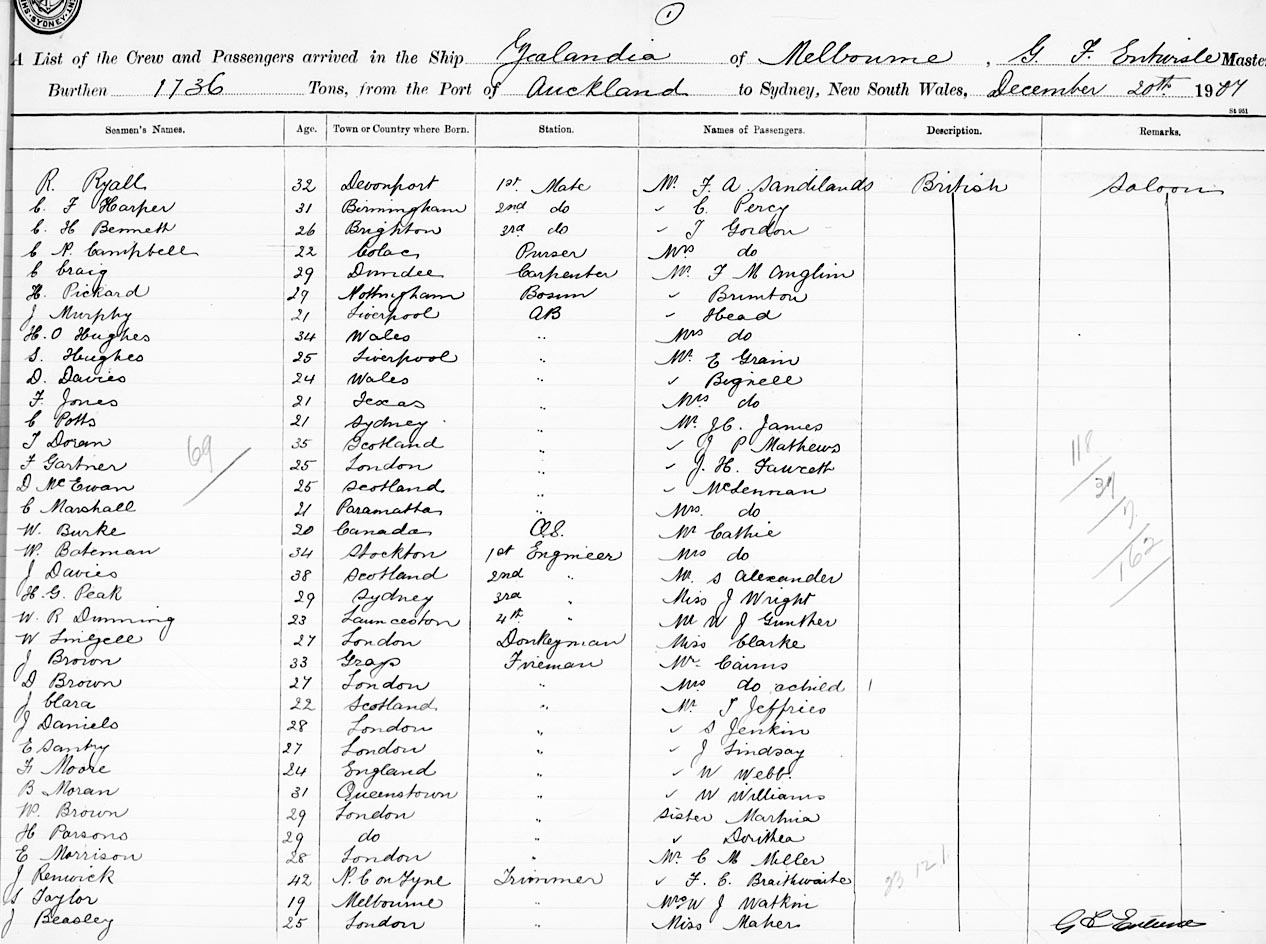 SYDNEY
1
A List of the Crew and Passengers arrived in the Ship Zealandia of Melbourne, G. F. Entwisle Master
Burthen 1736 Tons, from the Port of Auckland to Sydney, New South Wales, December 20th 1907
St 951
Seamen's Names. Age. Town or Country where Born. Station. Names of Passengers. Description. Remarks.
R. Ryall 32 Devonport 1st Mate Mr. F. A. Sandilands British Saloon
C. F Harper 31 Birmingham 2nd do " C. Percy
C. H Bennett 26 Brighton 3rd do " T Gordon
C N. Campbell 22 Colac Purser Mrs do
C Craig 29 Dundee Carpenter Mr. F M Anglim
H. Pickard 29 Nottingham Bosun " Brunton
J Murphy 21 Liverpool AB " Head
H. O Hughes 34 Wales " Mrs do
S. Hughes 25 Liverpool " Mr. E Grain
D. Davies 24 Wales " " Bignell
F. Jones 21 Texas " Mrs do
C Potts 21 Sydney " Mr. J C. James
T Doran 35 Scotland " " J P Mathews
F Gartner 25 London " " J. H. Fawcett
D McEwan 25 Scotland " " McLennan
C Marshall 21 Paramatta " Mrs. do
W. Burke 20 Canada O.S. Mr Cathie
W. Bateman 34 Stockton 1st Engineer Mrs do
J Davies 38 Scotland 2nd " Mr. S Alexander
H. G. Peak 29 Sydney 3rd " Miss J Wright
W. R Dunning 23 Launceston 4th " Mr W J Gunther
W 27 London Donkeyman Miss Clarke
J Brown 33 Grays Fireman Mr Cairns
D Brown 27 London " Mrs do a child 1
J Clara 22 Scotland " Mr. T Jeffries
J Daniels 28 London " " S Jenkin
E Santry 27 London " " J Lindsay
F. Moore 24 England " " W Webb.
B Moran 31 Queenstown " " W Williams
W. Brown 29 London " Sister Martina
H Parsons 29 do " " Dorithea
E Morrison 28 London " Mr C M Miller
J Renwick 42 N. C on Tyne Trimmer " F. C. Braithwaite
S Taylor 19 Melbourne " Mrs W J Watkin
J Beasley 25 London " Miss Maher
69
118
162